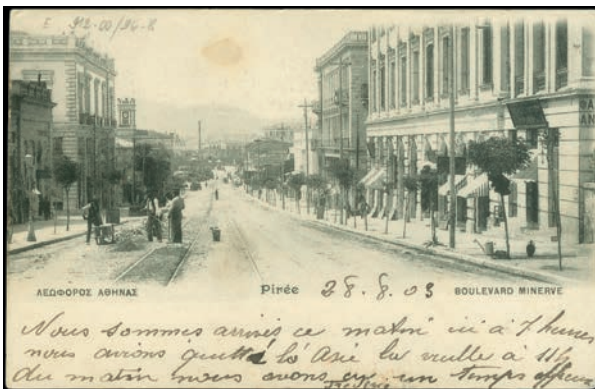 E 912-00/96-8
ΛΕΩΦΟΡΟΣ ΑΘΗΝΑΣ
Pirée
28.8.03
BOULEVARD MINERVE
Nous sommes arrivés ce matin ici à 7 heures
nous avions quitté la Asie la veille à 11h
du matin nous avons eu un temps